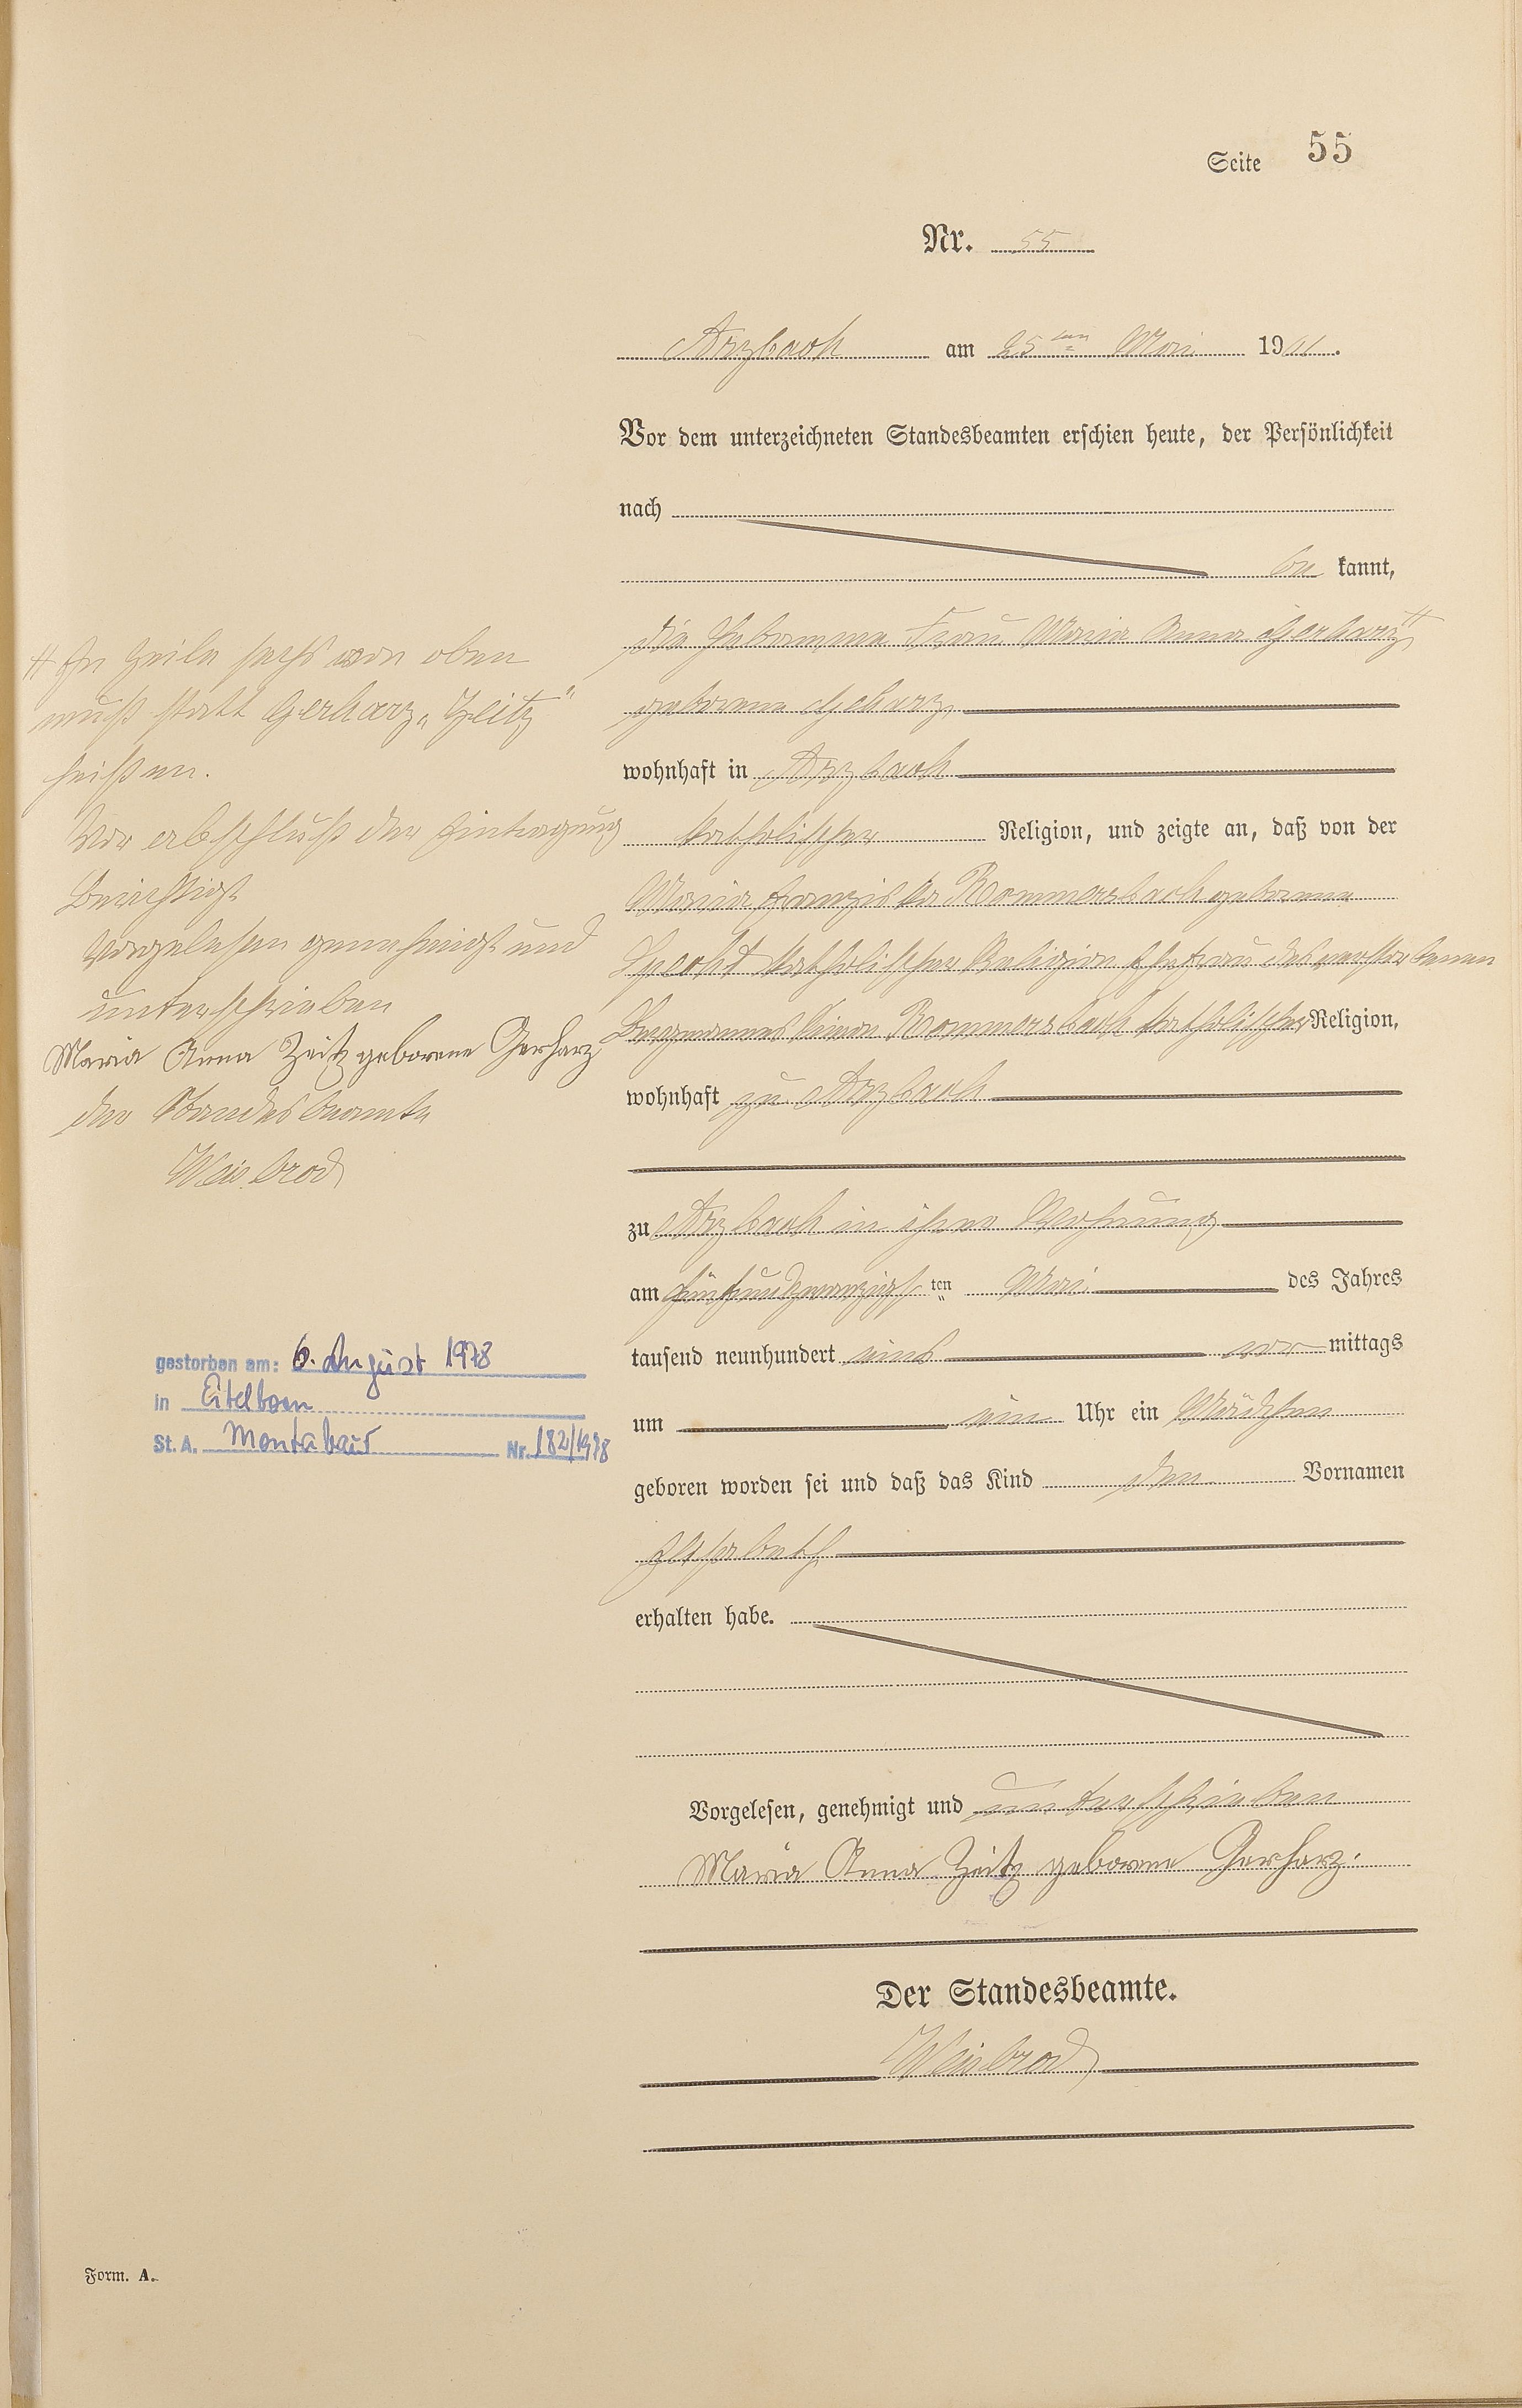 Seite 55
Nr. 55
Arzbach am 25ten Mai 1901.
Vor dem unterzeichneten Standesbeamten erschien heute, der Persönlichkeit
nach
be kannt,
die Hebamme Frau Maria Anna Gerharz #
geborene Gerharz
wohnhaft in Arzbach
katholischer Religion, und zeigte an, daß von der
Maria Franziska Rommersbach geborene
Specht katholischer Religion Ehefrau des verstorbenen
Bergmannes Simon Rommersbach katholischer Religion,
wohnhaft zu Arzbach
zu Arzbach in ihrer Wohnung
am fünfundzwanzigsten Mai des Jahres
tausend neunhundert eins vor mittags
um ein Uhr ein Mädchen
geboren worden sei und daß das Kind den Vornamen
Elisabeth
erhalten habe.
Vorgelesen, genehmigt und unterschrieben
Maria Anna Zeitz geborene Gerharz.
Der Standesbeamte.
Weisbrod
# In Zeile sechs von oben
muß statt Gerharz „Zeitz"
heißen.
Vor Abschluß der Eintragung
berichtigt
Vorgelesen genehmigt und
unterschrieben
Maria Anna Zeitz geborene Gerharz
der Standesbeamte
Weisbrod
gestorben am: 6. August 1978
in Eitelborn
St. A. Montabaur Nr. 182/1978
Form. A.